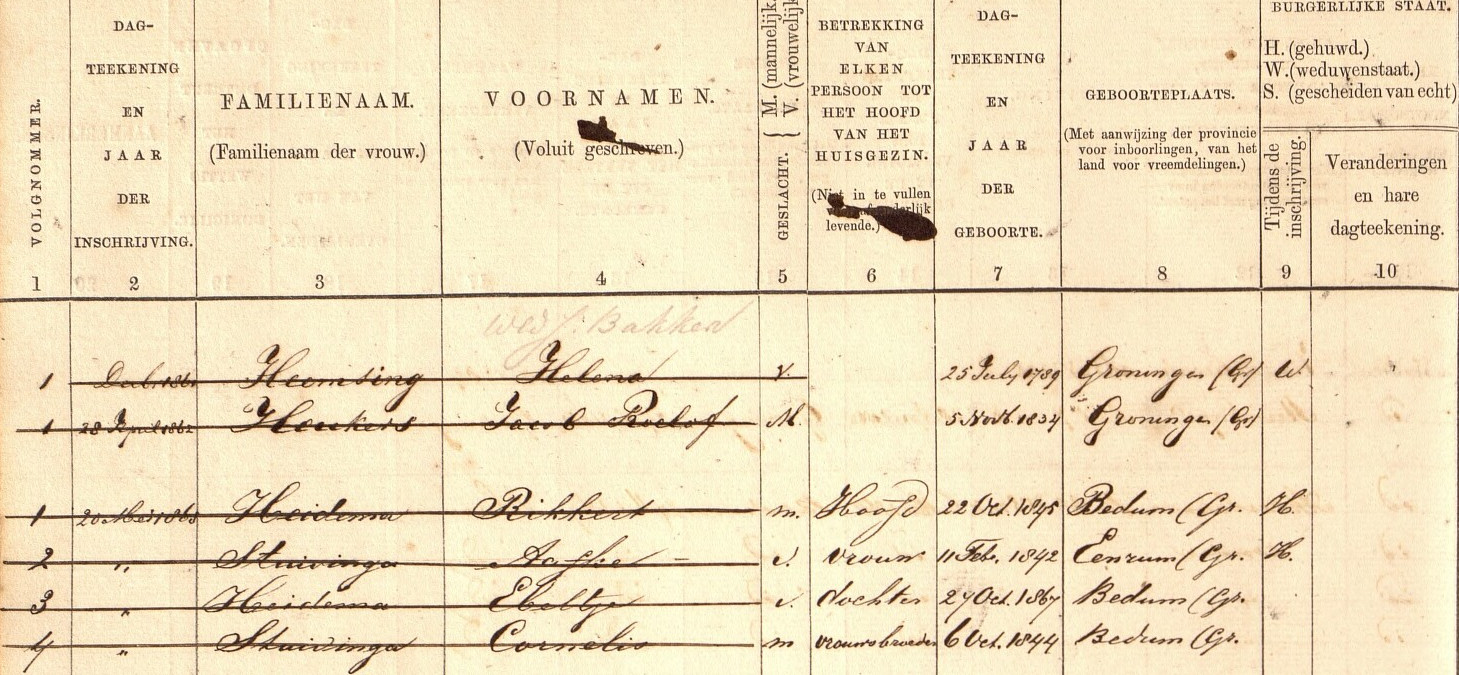 VOLGNOMMER.
DAG-
TEEKENING
EN
JAAR
DER
INSCHRIJVING.
FAMILIENAAM.
(Familienaam der vrouw.)
VOORNAMEN.
(Voluit geschreven.)
GESLACHT. { M. (mannelijk.
V. (vrouwelijk
BETREKKING
VAN
ELKEN
PERSOON TOT
HET HOOFD
VAN HET
HUISGEZIN.
(Niet in te vullen
levende.)
DAG-
TEEKENING
EN
JAAR
DER
GEBOORTE.
GEBOORTEPLAATS.
(Met aanwijzing der provincie
voor inboorlingen, van het
land voor vreemdelingen.)
BURGERLIJKE STAAT.
H. (gehuwd.)
W. (weduwenstaat.)
S. (gescheiden van echt)
Tijdens de
inschrijving.
Veranderingen
en hare
dagteekening.
1 2 3 4 5 6 7 8 9 10
wed J. Bakker
1 Heemsing Helena v. 25 July 1789 Groningen (Gr) W
1 28 April 1862 Heukers Jacob Roelof M. 5 Novb. 1834 Groningen (Gr)
1 Heidema Rikkert m. Hoofd 22 Oct. 1845 Bedum (Gr. H.
2 „ Stuivinga Aafke v. vrouw 11 Feb. 1842 Eenrum (Gr. H.
3 „ Heidema Ebeltje v. dochter 27 Oct. 1867 Bedum (Gr.
4 „ Stuivinga Cornelis m vrouwsbroeder 6 Oct. 1844 Bedum (Gr.